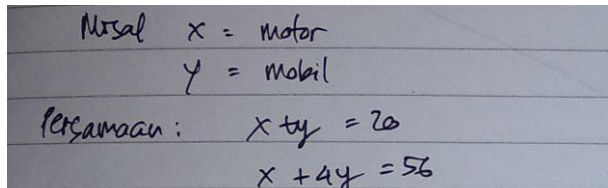 Misal x = motor
y = mobil
Persamaan : x + y = 20
x + 4y = 56